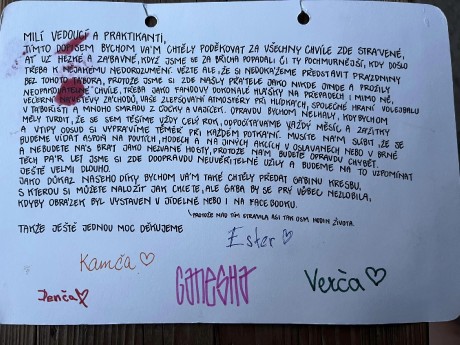 MILÍ VEDOUCÍ A PRAKTIKANTI,
TÍMTO DOPISEM BYCHOM VÁM CHTĚLY PODĚKOVAT ZA VŠECHNY CHVÍLE ZDE STRÁVENÉ,
AŤ UŽ HEZKÉ A ZÁBAVNÉ, KDY JSME SE ZA BŘICHA POPADALI ČI TY POCHMURNĚJŠÍ, KDY DOŠLO
TŘEBA K NĚJAKÉMU NEDOROZUMĚNÍ. VĚZTE ALE, ŽE SI NEDOKÁŽEME PŘEDSTAVIT PRÁZDNINY
BEZ TOHOTO TÁBORA, PROTOŽE JSME SI ZDE NAŠLY PŘÁTELE JAKO NIKDE JINDE A PROŽILY
NEOPAKOVATELNÉ CHVÍLE, TŘEBA JAKO FANDOVY DOKONALÉ HLÁŠKY NA PŘEPADECH I MIMO NĚ,
VEČERNÍ NÁVŠTĚVY ZÁCHODŮ, VAŠE ZLEPŠOVÁNÍ ATMOSFÉRY PŘI HLÍDKÁCH, SPOLEČNÉ HRANÍ VOLEJBALU
V TÁBOŘIŠTI A MNOHO SMRADU Z ČOČKY A VAJÍČEK. OPRAVDU BYCHOM NELHALY, KDYBYCHOM
MĚLY TVRDIT, ŽE SE SEM TĚŠÍME VŽDY CELÝ ROK, ODPOČÍTÁVÁME KAŽDÝ MĚSÍC A ZÁŽITKY
A VTIPY DOSUD SI VYPRÁVÍME TÉMĚŘ PŘI KAŽDÉM POTKÁNÍ. MUSÍTE NÁM SLÍBIT, ŽE SE
BUDEME VÍDAT ASPOŇ NA POUTÍCH, HODECH A NA JINÝCH AKCÍCH V OSLAVANECH NEBO V BRNĚ
A NEBUDETE NÁS BRÁT JAKO NEZVANÉ HOSTY, PROTOŽE NÁM BUDETE OPRAVDU CHYBĚT.
TĚCH PÁR LET JSME SI ZDE DOOPRAVDU NEUVĚŘITELNĚ UŽILY A BUDEME NA TO VZPOMÍNAT
JEŠTĚ VELMI DLOUHO.
JAKO DŮKAZ NAŠEHO DÍKY BYCHOM VÁM TAKÉ CHTĚLY PŘEDAT GÁBINU KRESBU,
S KTEROU SI MŮŽETE NALOŽIT JAK CHCETE, ALE GÁBA BY SE PRÝ VŮBEC NEZLOBILA,
KDYBY OBRÁZEK BYL VYSTAVEN V JÍDELNĚ NEBO I NA FACEBOOKU.
PROTOŽE NAD TÍM STRÁVILA ASI TAK OSM HODIN ŽIVOTA.
TAKŽE JEŠTĚ JEDNOU MOC DĚKUJEME
Ester ♡
Kamča ♡
Jenča ♡
GANESHA
Verča ♡